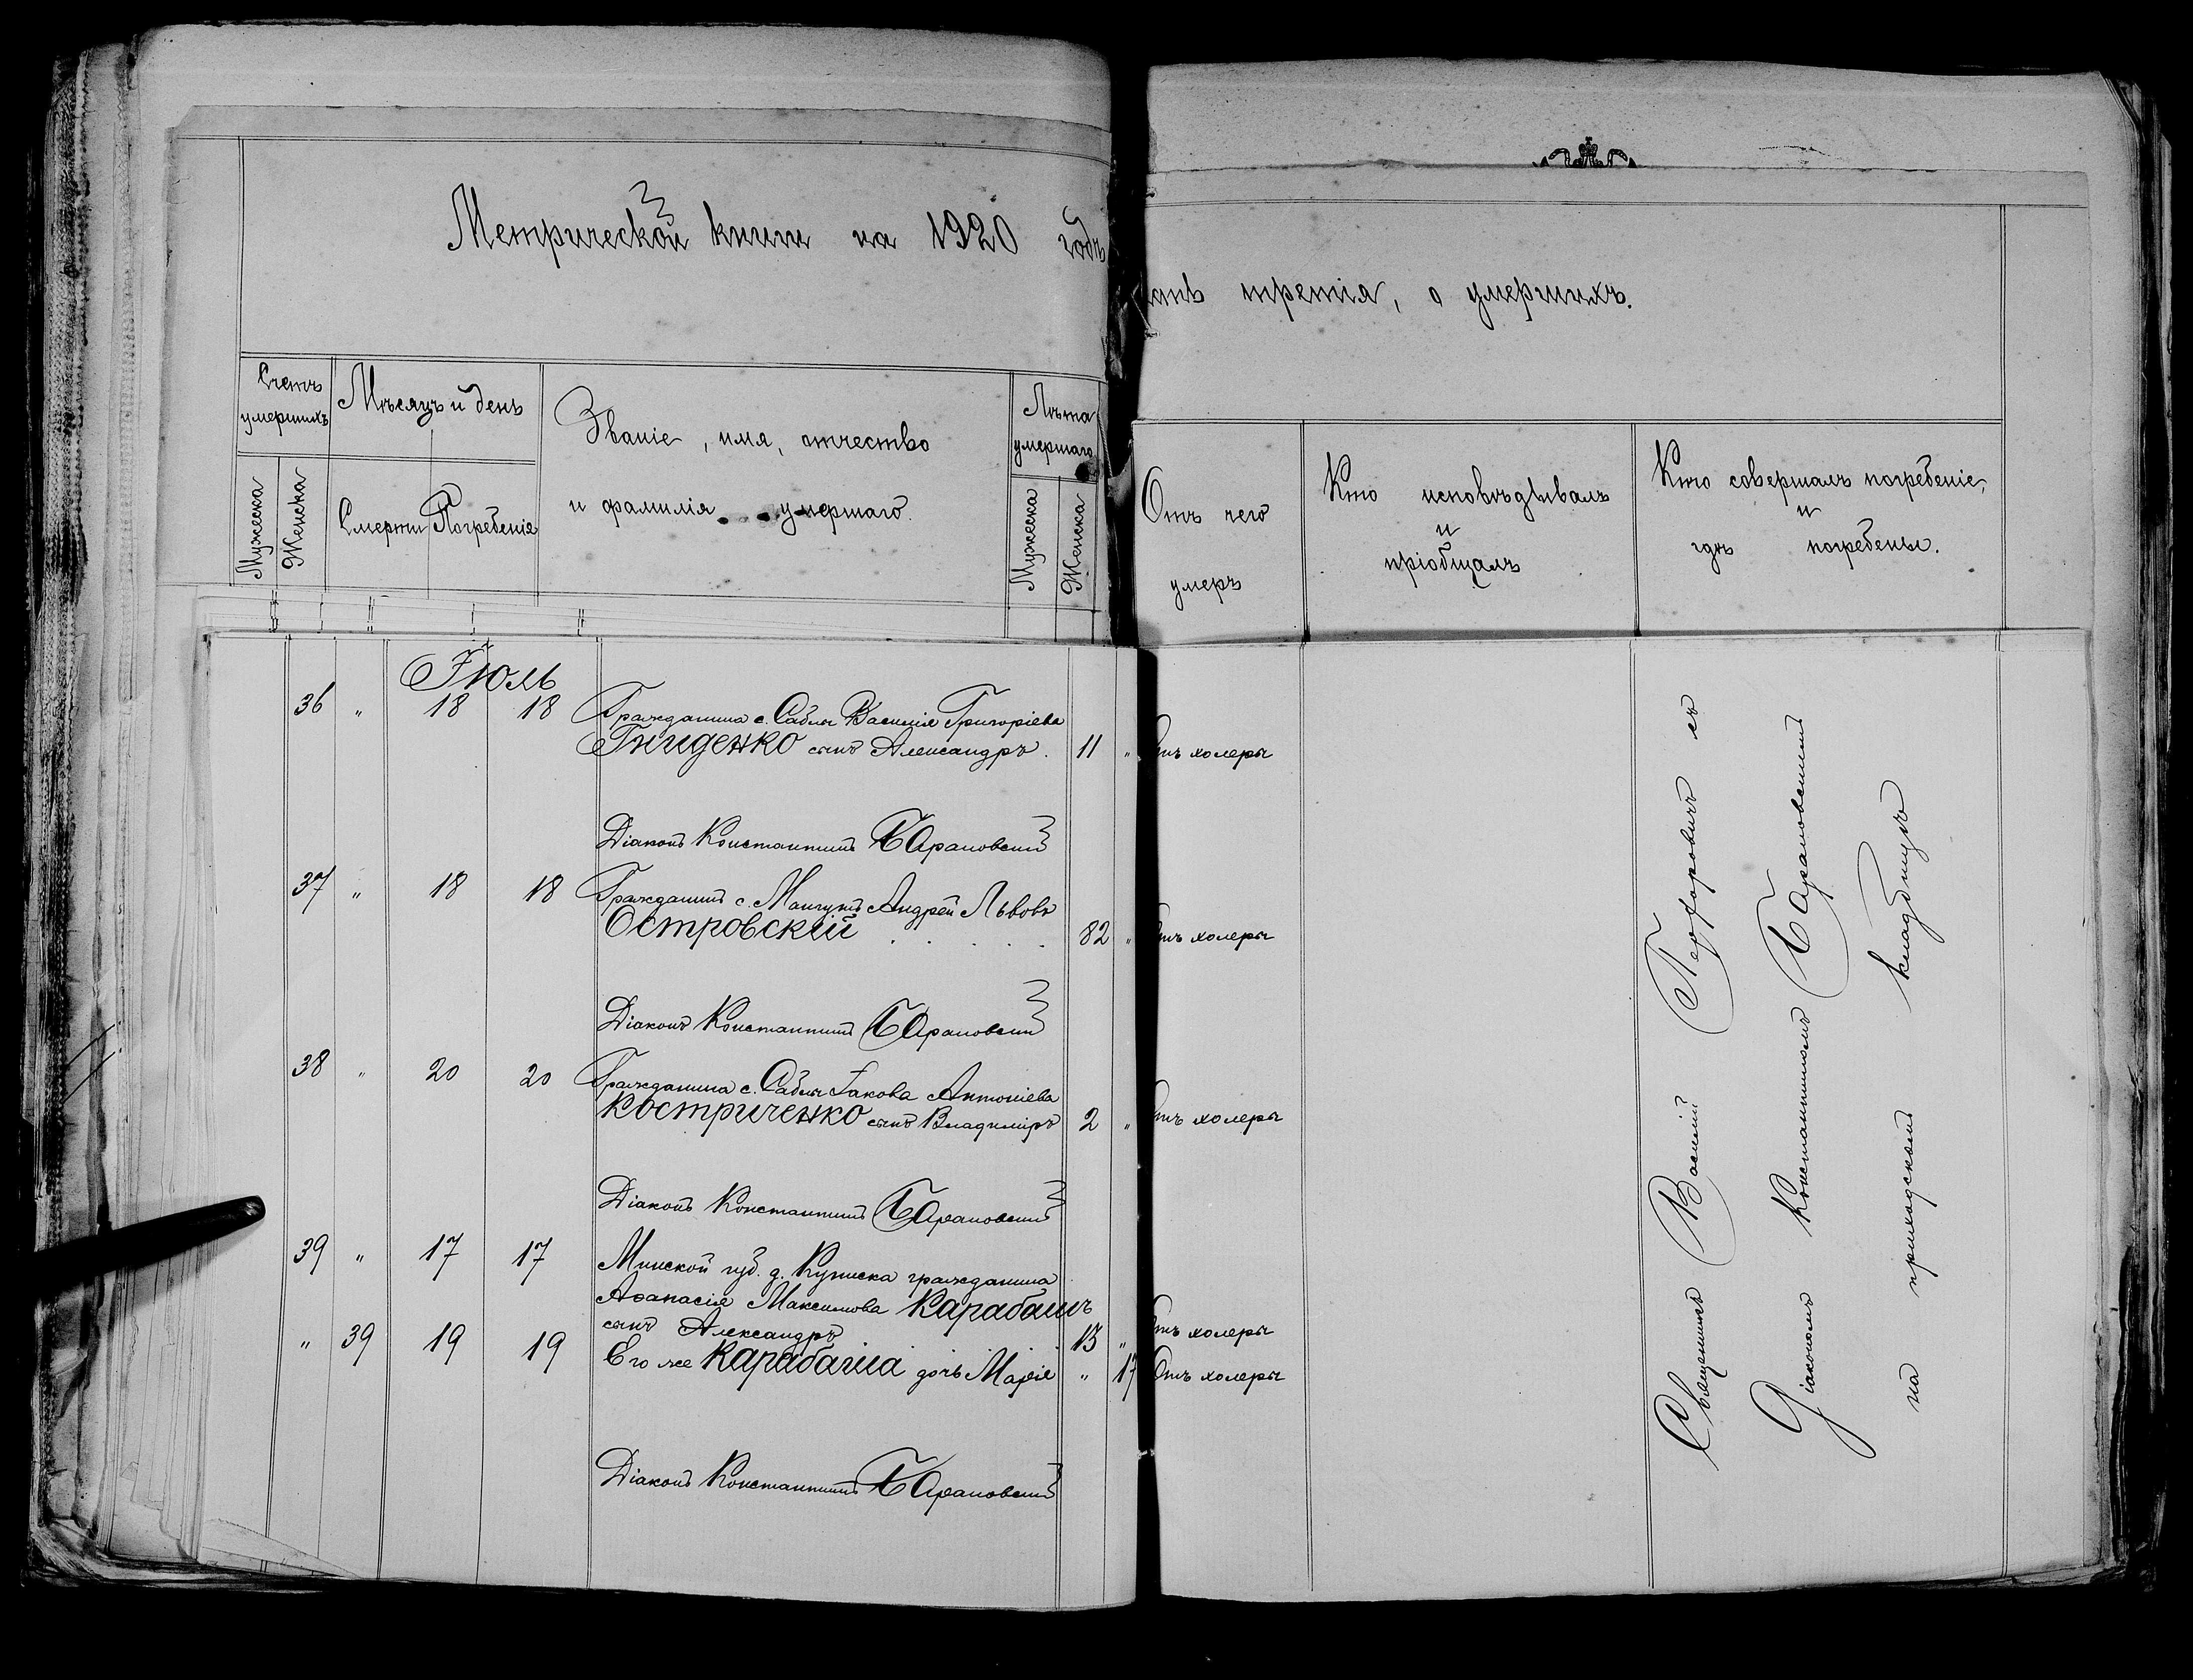 Метрической книги на 1920 годъ
третія, о умершихъ.
Счетъ умершихъ
Мужеска
Женска
Мѣсяцъ и день
Смерти
Погребенія
Званіе, имя, отчество
и фамилія умершаго.
Лѣта умершаго
Мужеска
Женска
Отъ чего
умеръ
Кто исповѣдывалъ
и
пріобщалъ
Кто совершалъ погребеніе,
и
гдѣ погребены.
Іюль
36 " 18 18 Гражданина с. Саблы Василія Григоріева
Гниденко сынъ Александръ. 11 " Отъ холеры
Діаконъ Константинъ Барановскій
37 " 18 18 Гражданинъ с. Мангушъ Андрей Львовъ
Островскій 82 " Отъ холеры
Діаконъ Константинъ Барановскій
38 " 20 20 Гражданина с. Саблы Іакова Антоніева
Костриченко сынъ Владиміръ 2 " Отъ холеры
Діаконъ Константинъ Барановскій
39 " 17 17 Минской губ. д. гражданина
Аѳанасія Максимова Карабашъ
сынъ Александръ 13 " Отъ холеры
" 39 19 19 Его же Карабаша дочь Марія " 17 Отъ холеры
Діаконъ Константинъ Барановскій
Священникъ Василій съ
Діакономъ Константиномъ Барановскимъ
на приходскомъ кладбищѣ